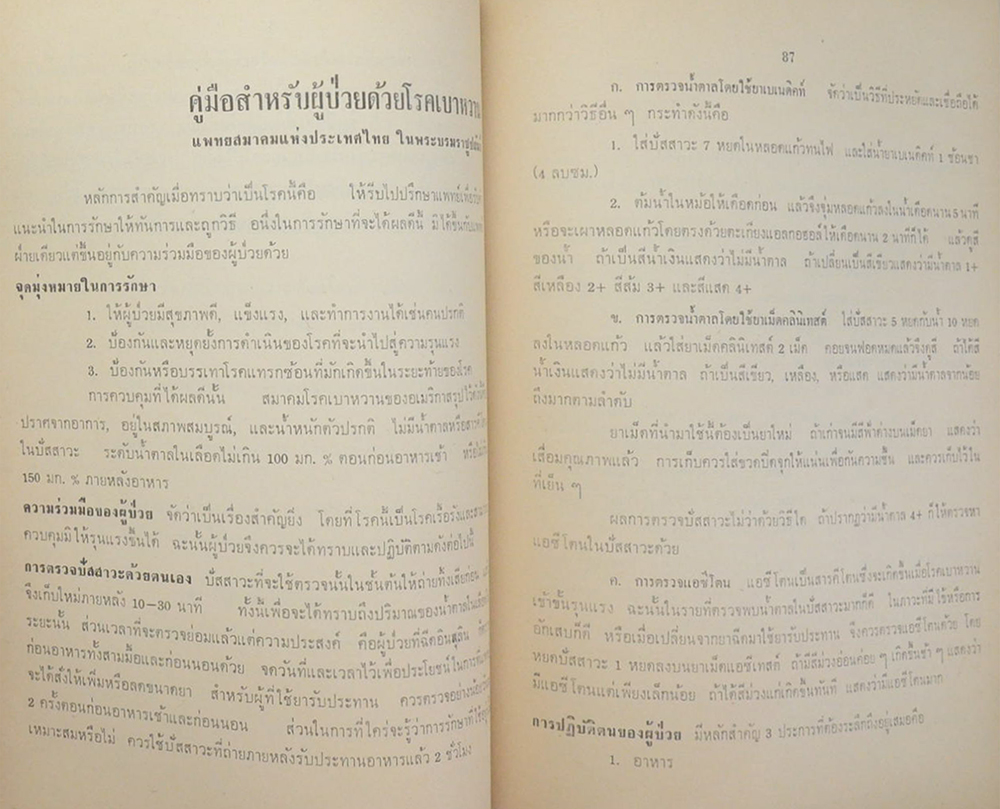 คู่มือสำหรับผู้ป่วยด้วยโรคเบาหวาน
แพทยสมาคมแห่งประเทศไทย ในพระบรมราชูปถัมภ์
หลักการสำคัญเมื่อทราบว่าเป็นโรคนี้คือ ให้รีบไปปรึกษาแพทย์
แนะนำในการรักษาให้ทันการและถูกวิธี อนึ่งในการรักษาที่จะได้ผลดีนี้ มิได้ขึ้นกับแพทย์
ฝ่ายเดียวแต่ขึ้นอยู่กับความร่วมมือของผู้ป่วยด้วย
จุดมุ่งหมายในการรักษา
1. ให้ผู้ป่วยมีสุขภาพดี, แข็งแรง, และทำการงานได้เช่นคนปรกติ
2. ป้องกันและหยุดยั้งการดำเนินของโรคที่จะนำไปสู่ความรุนแรง
3. ป้องกันหรือบรรเทาโรคแทรกซ้อนที่มักเกิดขึ้นในระยะท้ายของโรค
การควบคุมที่ได้ผลดีนั้น สมาคมโรคเบาหวานของอเมริกาสรุปไว้
ปราศจากอาการ, อยู่ในสภาพสมบูรณ์, และน้ำหนักตัวปรกติ ไม่มีน้ำตาลหรือ
ในปัสสาวะ ระดับน้ำตาลในเลือดไม่เกิน 100 มก. % ตอนก่อนอาหารเช้า หรือ
150 มก. % ภายหลังอาหาร
ความร่วมมือของผู้ป่วย จัดว่าเป็นเรื่องสำคัญยิ่ง โดยที่โรคนี้เป็นโรคเรื้อรังและ
ควบคุมมิให้รุนแรงขึ้นได้ ฉะนั้นผู้ป่วยจึงควรจะได้ทราบและปฏิบัติตามดังต่อไปนี้
การตรวจปัสสาวะด้วยตนเอง ปัสสาวะที่จะใช้ตรวจนั้นในชั้นต้นให้ถ่ายทิ้งเสียก่อน
จึงเก็บใหม่ภายหลัง 10-30 นาที ทั้งนี้เพื่อจะได้ทราบถึงปริมาณของน้ำตาลใน
ระยะนั้น ส่วนเวลาที่จะตรวจย่อมแล้วแต่ความประสงค์ คือผู้ป่วยที่ฉีดอินสุลิน
ก่อนอาหารทั้งสามมื้อและก่อนนอนด้วย จดวันที่และเวลาไว้เพื่อประโยชน์ในการ
จะได้สั่งให้เพิ่มหรือลดขนาดยา สำหรับผู้ที่ใช้ยารับประทาน ควรตรวจอย่างน้อย
2 ครั้งตอนก่อนอาหารเช้าและก่อนนอน ส่วนในการที่ใคร่จะรู้ว่าการรักษาที่ใช้
เหมาะสมหรือไม่ ควรใช้ปัสสาวะที่ถ่ายภายหลังรับประทานอาหารแล้ว 2 ชั่วโมง
87
ก. การตรวจน้ำตาลโดยใช้ยาเบเนดิคท์ จัดว่าเป็นวิธีที่ประหยัดและเชื่อถือได้
มากกว่าวิธีอื่น ๆ กระทำดังนี้คือ
1. ใส่ปัสสาวะ 7 หยดในหลอดแก้วทนไฟ และใส่น้ำยาเบเนดิคท์ 1 ช้อนชา
(4 ลบซม.)
2. ต้มน้ำในหม้อให้เดือดก่อน แล้วจึงจุ่มหลอดแก้วลงในน้ำเดือดนาน 5 นาที
หรือจะเผาหลอดแก้วโดยตรงด้วยตะเกียงแอลกอฮอล์ให้เดือดนาน 2 นาทีก็ได้ แล้วดูสี
ของน้ำ ถ้าเป็นสีน้ำเงินแสดงว่าไม่มีน้ำตาล ถ้าเปลี่ยนเป็นสีเขียวแสดงว่ามีน้ำตาล 1+
สีเหลือง 2+ สีส้ม 3+ และสีแสด 4+
ข. การตรวจน้ำตาลโดยใช้ยาเม็ดคลินิเทสต์ ใส่ปัสสาวะ 5 หยดกับน้ำ 10 หยด
ลงในหลอดแก้ว แล้วใส่ยาเม็ดคลินิเทสต์ 2 เม็ด คอยจนฟอดหมดแล้วจึงดูสี ถ้าได้สี
น้ำเงินแสดงว่าไม่มีน้ำตาล ถ้าเป็นสีเขียว, เหลือง, หรือแสด แสดงว่ามีน้ำตาลจากน้อย
ถึงมากตามลำดับ
ยาเม็ดที่นำมาใช้นี้ต้องเป็นยาใหม่ ถ้าเก่าจนมีสีฟ้าด่างบนเม็ดยา แสดงว่า
เสื่อมคุณภาพแล้ว การเก็บควรใส่ขวดปิดจุกให้แน่นเพื่อกันความชื้น และควรเก็บไว้ใน
ที่เย็น ๆ
ผลการตรวจปัสสาวะไม่ว่าด้วยวิธีใด ถ้าปรากฏว่ามีน้ำตาล 4+ ก็ให้ตรวจหา
แอซีโตนในปัสสาวะด้วย
ค. การตรวจแอซีโตน แอซีโตนเป็นสารคีโตนซึ่งจะเกิดขึ้นเมื่อโรคเบาหวาน
เข้าขั้นรุนแรง ฉะนั้นในรายที่ตรวจพบน้ำตาลในปัสสาวะมากก็ดี ในภาวะที่มีไข้หรือการ
อักเสบก็ดี หรือเมื่อเปลี่ยนจากยาฉีดมาใช้ยารับประทาน จึงควรตรวจแอซีโตนด้วย โดย
หยดปัสสาวะ 1 หยดลงบนยาเม็ดแอซีเทสต์ ถ้ามีสีม่วงอ่อนค่อย ๆ เกิดขึ้นช้า ๆ แสดงว่า
มีแอซีโตนแต่เพียงเล็กน้อย ถ้าได้สีม่วงแก่เกิดขึ้นทันที แสดงว่ามีแอซีโตนมาก
การปฏิบัติตนของผู้ป่วย มีหลักสำคัญ 3 ประการที่ต้องระลึกถึงอยู่เสมอคือ
1. อาหาร